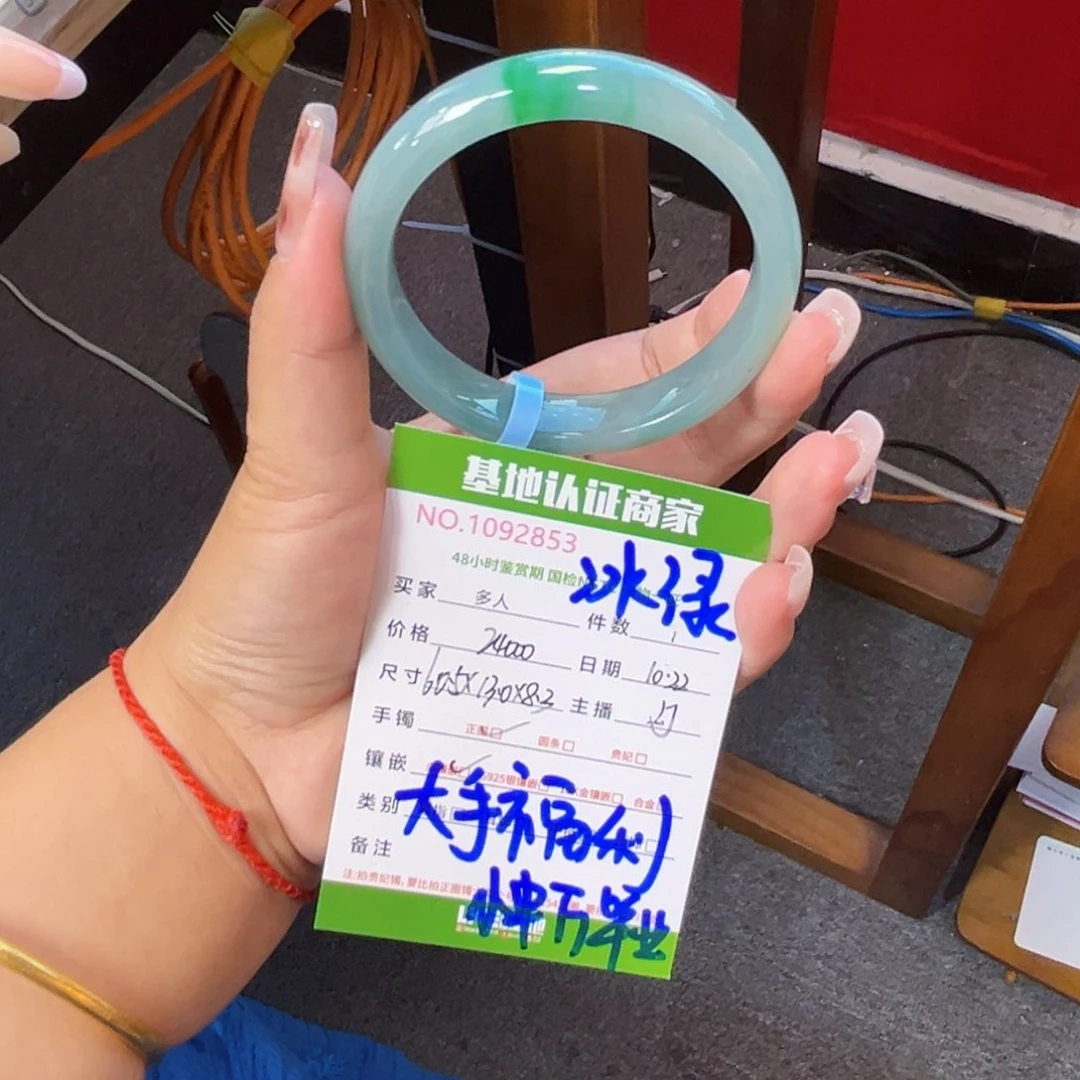 基地认证商家
NO.1092853
48小时鉴赏期 国检
冰绿
买家 多人 件数 1
价格 24000 日期 10.22
尺寸 60.5X13.0X8.2 主播
手镯 正圈 圆条 贵妃
镶嵌 925银镶嵌 金镶嵌 合金
类别
大手福利
备注
注:拍贵妃镯,要比拍正圈镯